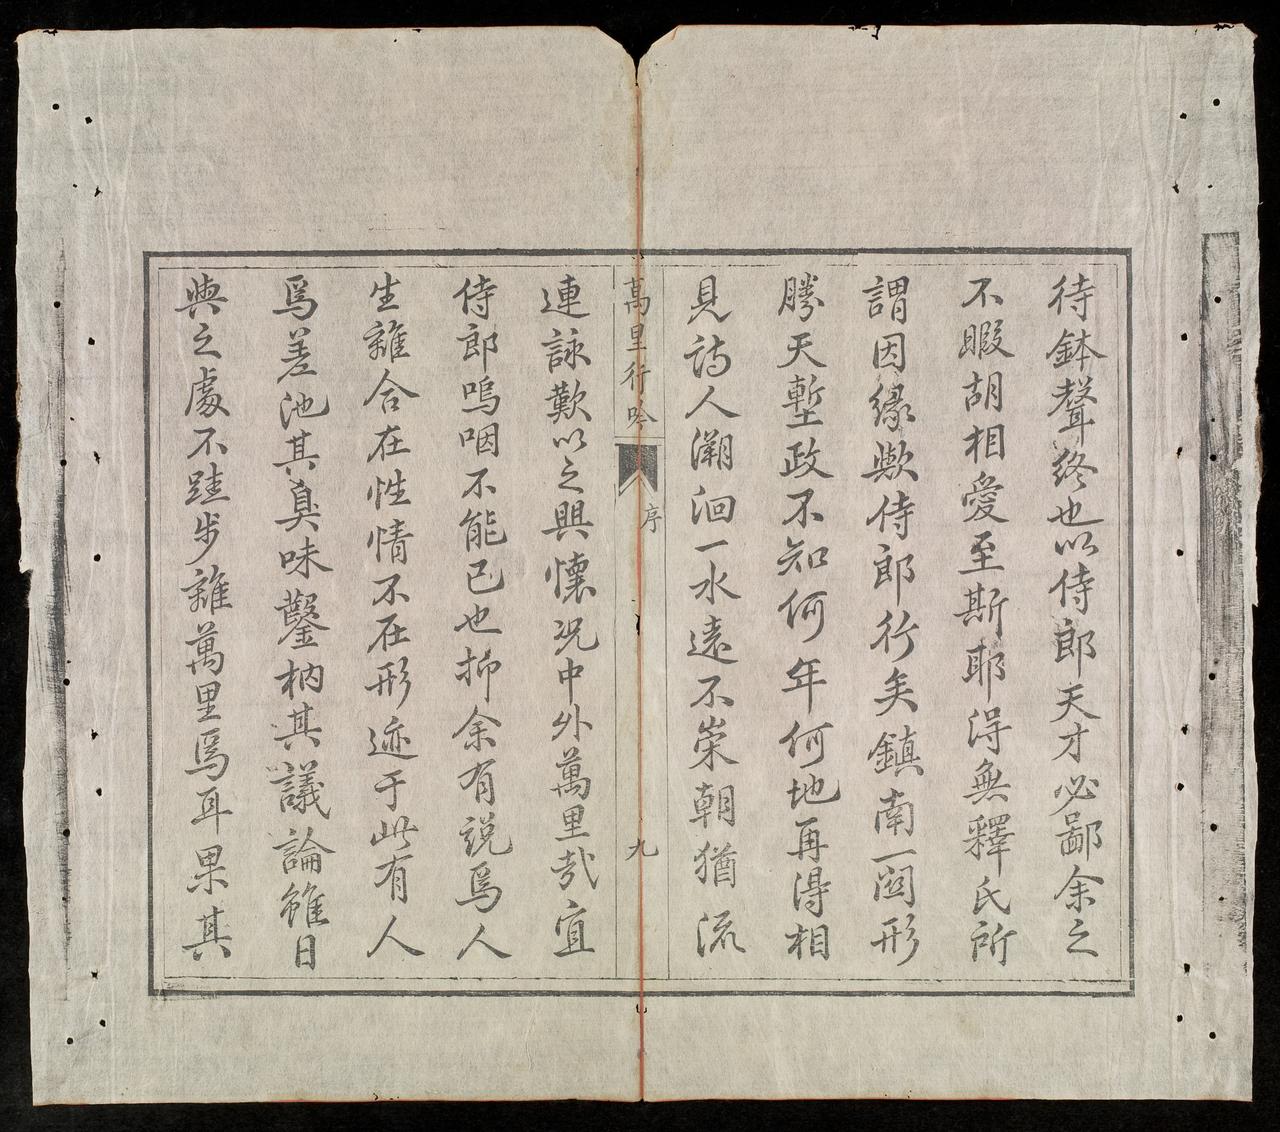 待鉢聲終也以侍郎天才必鄙余之
不暇胡相愛至斯耶得無釋氏所
謂因緣歟侍郎行矣鎮南一關形
勝天塹政不知何年何地再得相
見詩人溯洄一水遠不崇朝猶流
連詠歎以之興懷況中外萬里哉宜
侍郎嗚咽不能已也抑余有說焉人
生離合在性情不在形迹于此有人
焉差池其臭味鑿枘其議論雖日
與之處不跬步離萬里焉耳果其
萬里行吟
序
九